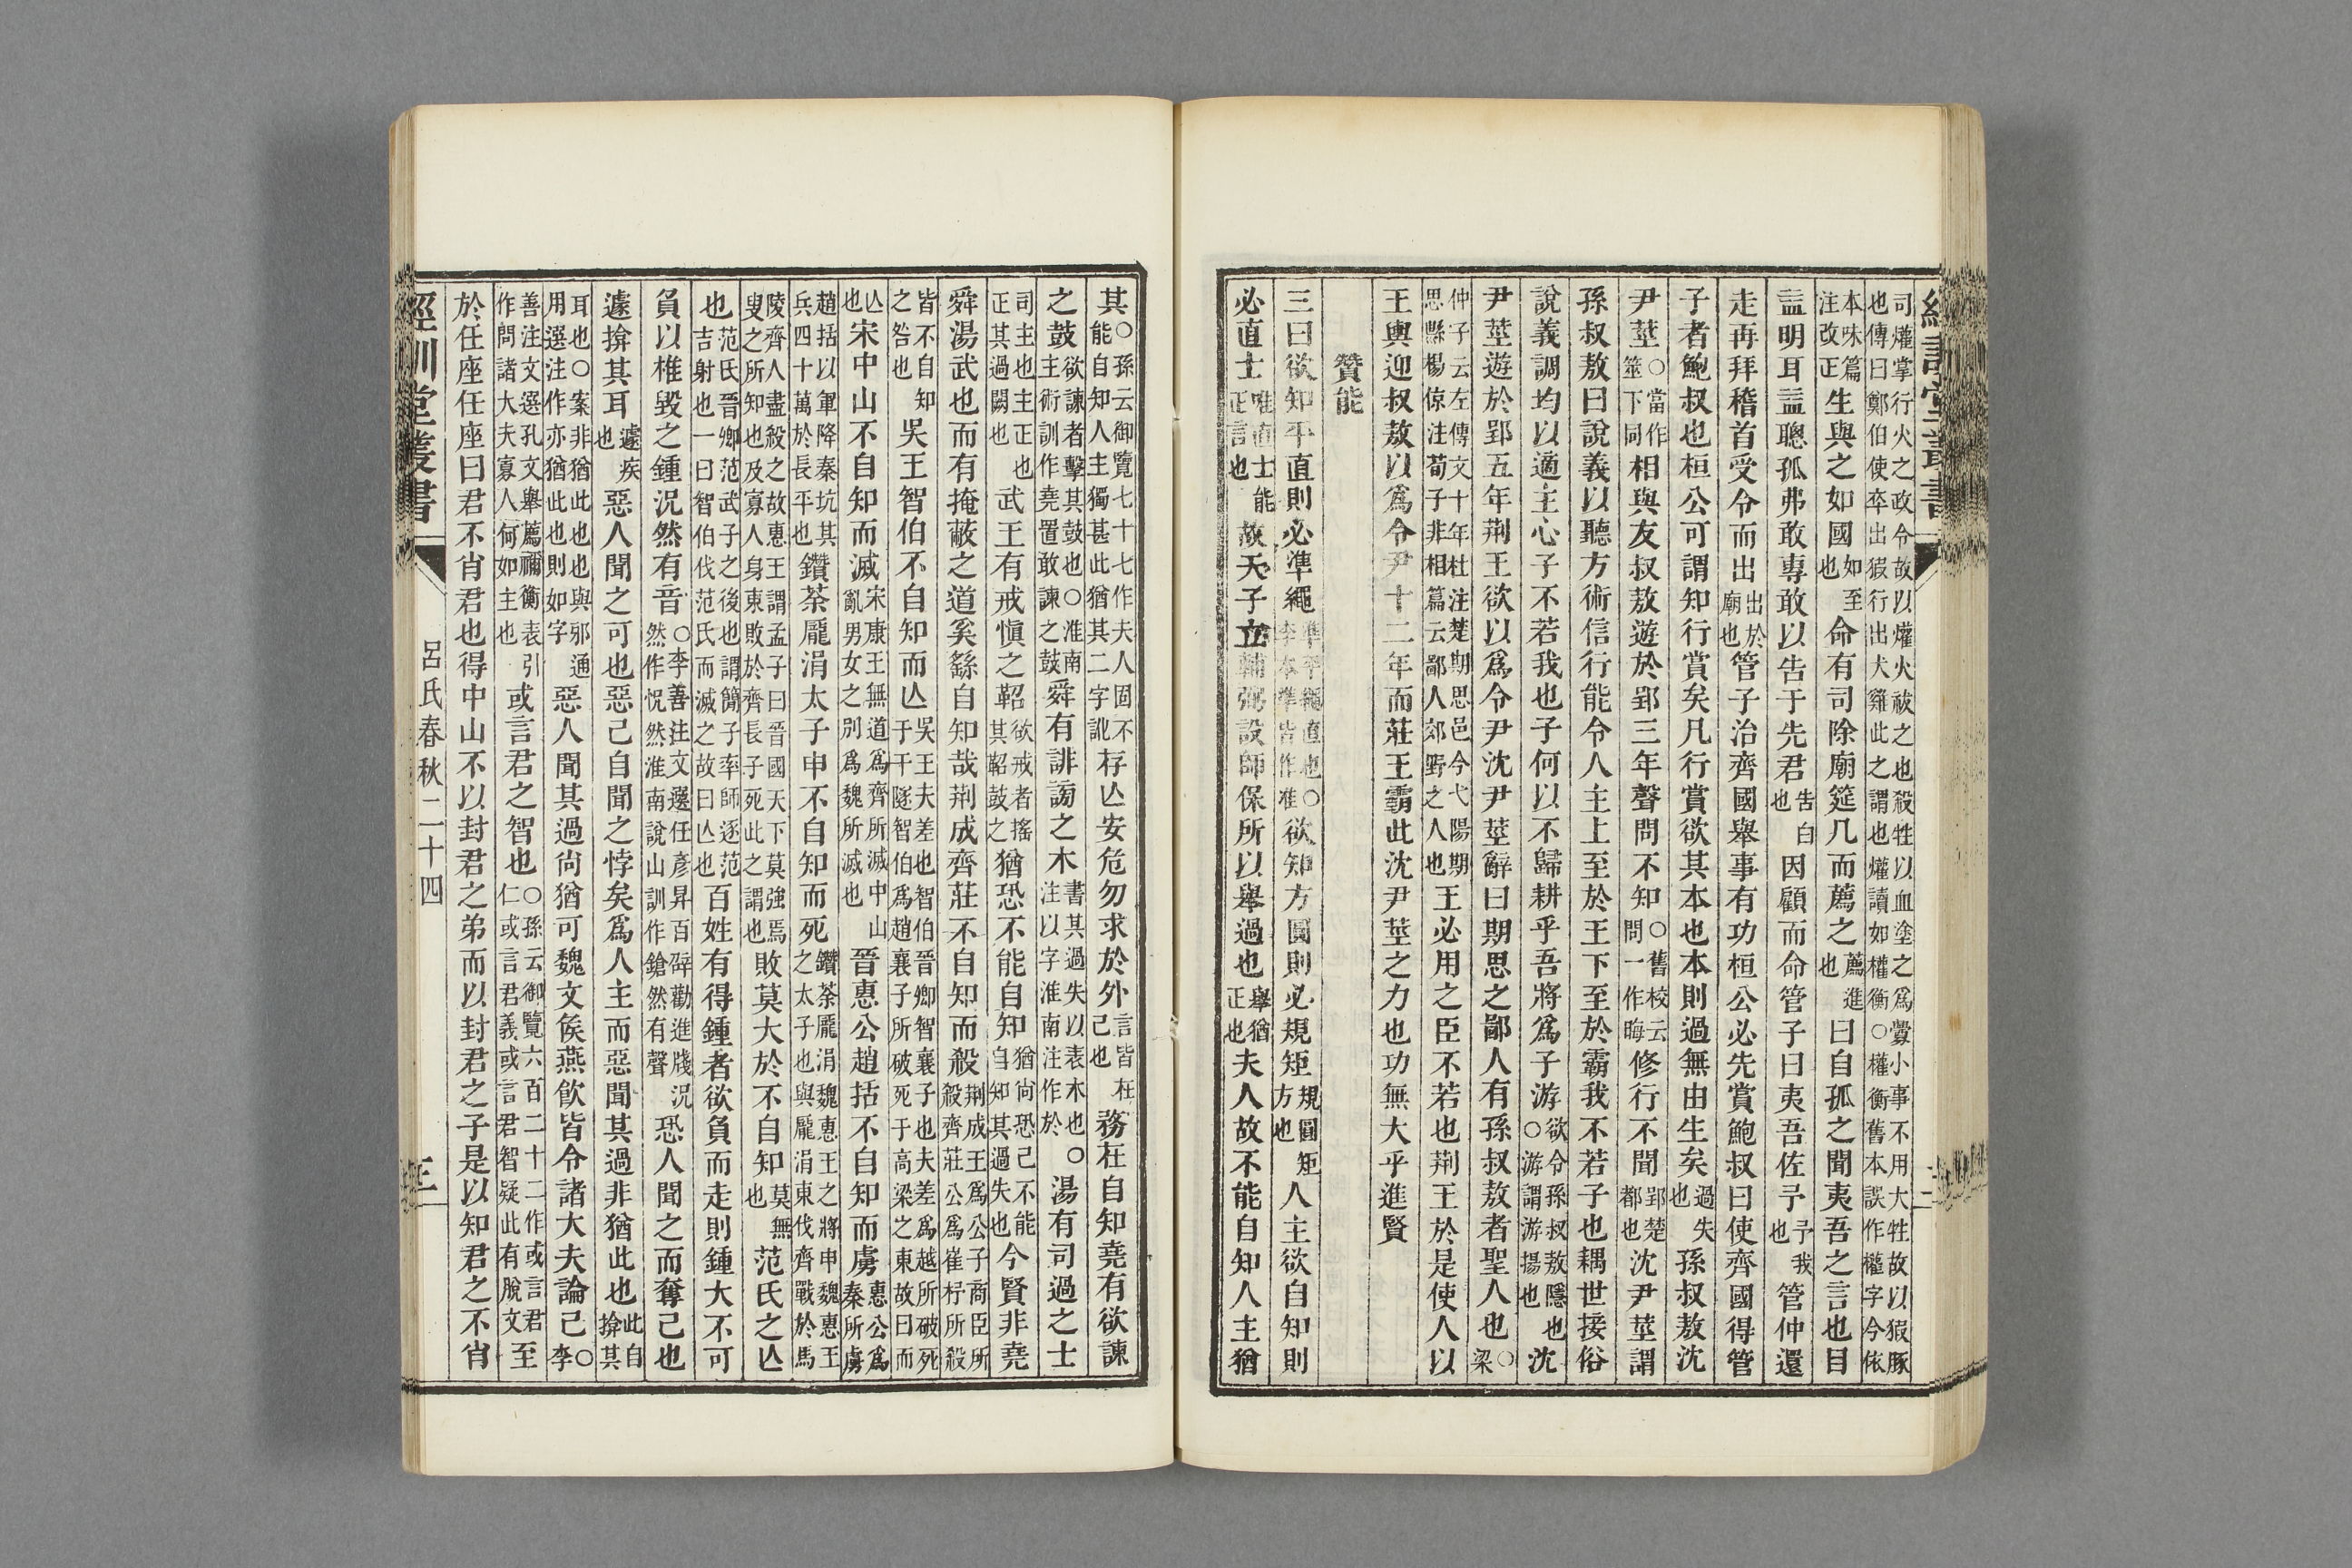 經訓堂叢書 二
司爟掌行火之政令故以爟火祓之也殺牲以血塗之爲釁小事不用大牲故以猳豚
也傳曰鄭伯使卒出猳行出犬雞此之謂也爟讀如權衡○權衡舊本誤作權字今依
本味篇注改正生與之如國如至也命有司除廟筵几而薦之薦進也曰自孤之聞夷吾之言也目
益明耳益聰孤弗敢專敢以告于先君告白也因顧而命管子曰夷吾佐予予我也管仲還
走再拜稽首受令而出出於廟也管子治齊國舉事有功桓公必先賞鮑叔曰使齊國得管
子者鮑叔也桓公可謂知行賞矣凡行賞欲其本也本則過無由生矣過失也孫叔敖沈
尹莖○當作筮下同相與友叔敖遊於郢三年聲問不知○舊校云問一作晦修行不聞郢楚都也沈尹莖謂
孫叔敖曰說義以聽方術信行能令人主上至於王下至於霸我不若子也耦世接俗
說義調均以適主心子不若我也子何以不歸耕乎吾將爲子游欲令孫叔敖隱也○游謂游揚也沈
尹莖遊於郢五年荆王欲以爲令尹沈尹莖辭曰期思之鄙人有孫叔敖者聖人也○梁
仲子云左傳文十年杜注楚期思邑今弋陽期
思縣楊倞注荀子非相篇云鄙人郊野之人也王必用之臣不若也荆王於是使人以
王輿迎叔敖以爲令尹十二年而莊王霸此沈尹莖之力也功無大乎進賢
贊能
三曰欲知平直則必準繩準平繩直也○李本準皆作准欲知方圓則必規矩規圓矩方也人主欲自知則
必直士唯直士能正言也故天子立輔弼設師保所以舉過也舉猶正也夫人故不能自知人主猶
其○孫云御覽七十七作夫人固不能自知人主獨甚此猶其二字訛存亾安危勿求於外言皆在己也務在自知堯有欲諫
之鼓欲諫者擊其鼓也○淮南主術訓作堯置敢諫之鼓舜有誹謗之木書其過失以表木也○注以字淮南注作於湯有司過之士
司主也主正也正其過闕也武王有戒愼之鞀欲戒者搖其鞀鼓之猶恐不能自知猶尙恐己不能自知其過失也今賢非堯
舜湯武也而有掩蔽之道奚繇自知哉荆成齊莊不自知而殺荆成王爲公子商臣所殺齊莊公爲崔杼所殺
皆不自知之咎也吳王智伯不自知而亾吳王夫差也智伯晉卿智襄子也夫差爲越所破死于干隧智伯爲趙襄子所破死于高梁之東故曰而
亾也宋中山不自知而滅宋康王無道爲齊所滅中山亂男女之別爲魏所滅也晉惠公趙括不自知而虜惠公爲秦所虜
趙括以軍降秦坑其兵四十萬於長平也鑽荼龐涓太子申不自知而死鑽荼龐涓魏惠王之將申魏惠王之太子也與龐涓東伐齊戰於馬
陵齊人盡殺之故惠王謂孟子曰晉國天下莫強焉
叟之所知也及寡人身東敗於齊長子死此之謂也敗莫大於不自知莫無也范氏之亾
也范氏晉卿范武子之後也謂簡子率師逐范吉射也一曰智伯伐范氏而滅之故曰亾也百姓有得鍾者欲負而走則鍾大不可
負以椎毀之鍾況然有音○李善注文選任彥昇百辟勸進牋況然作怳然淮南說山訓作鎗然有聲恐人聞之而奪己也
遽揜其耳遽疾也惡人聞之可也惡己自聞之悖矣爲人主而惡聞其過非猶此也此自揜其
耳也○案非猶此也也與邪通用選注作亦猶此也則如字惡人聞其過尙猶可魏文侯燕飮皆令諸大夫論己○李
善注文選孔文舉薦禰衡表引作問諸大夫寡人何如主也或言君之智也○孫云御覽六百二十二作或言君仁或言君義或言君智疑此有脫文至
於任座任座曰君不肖君也得中山不以封君之弟而以封君之子是以知君之不肖
經訓堂叢書 呂氏春秋二十四 三